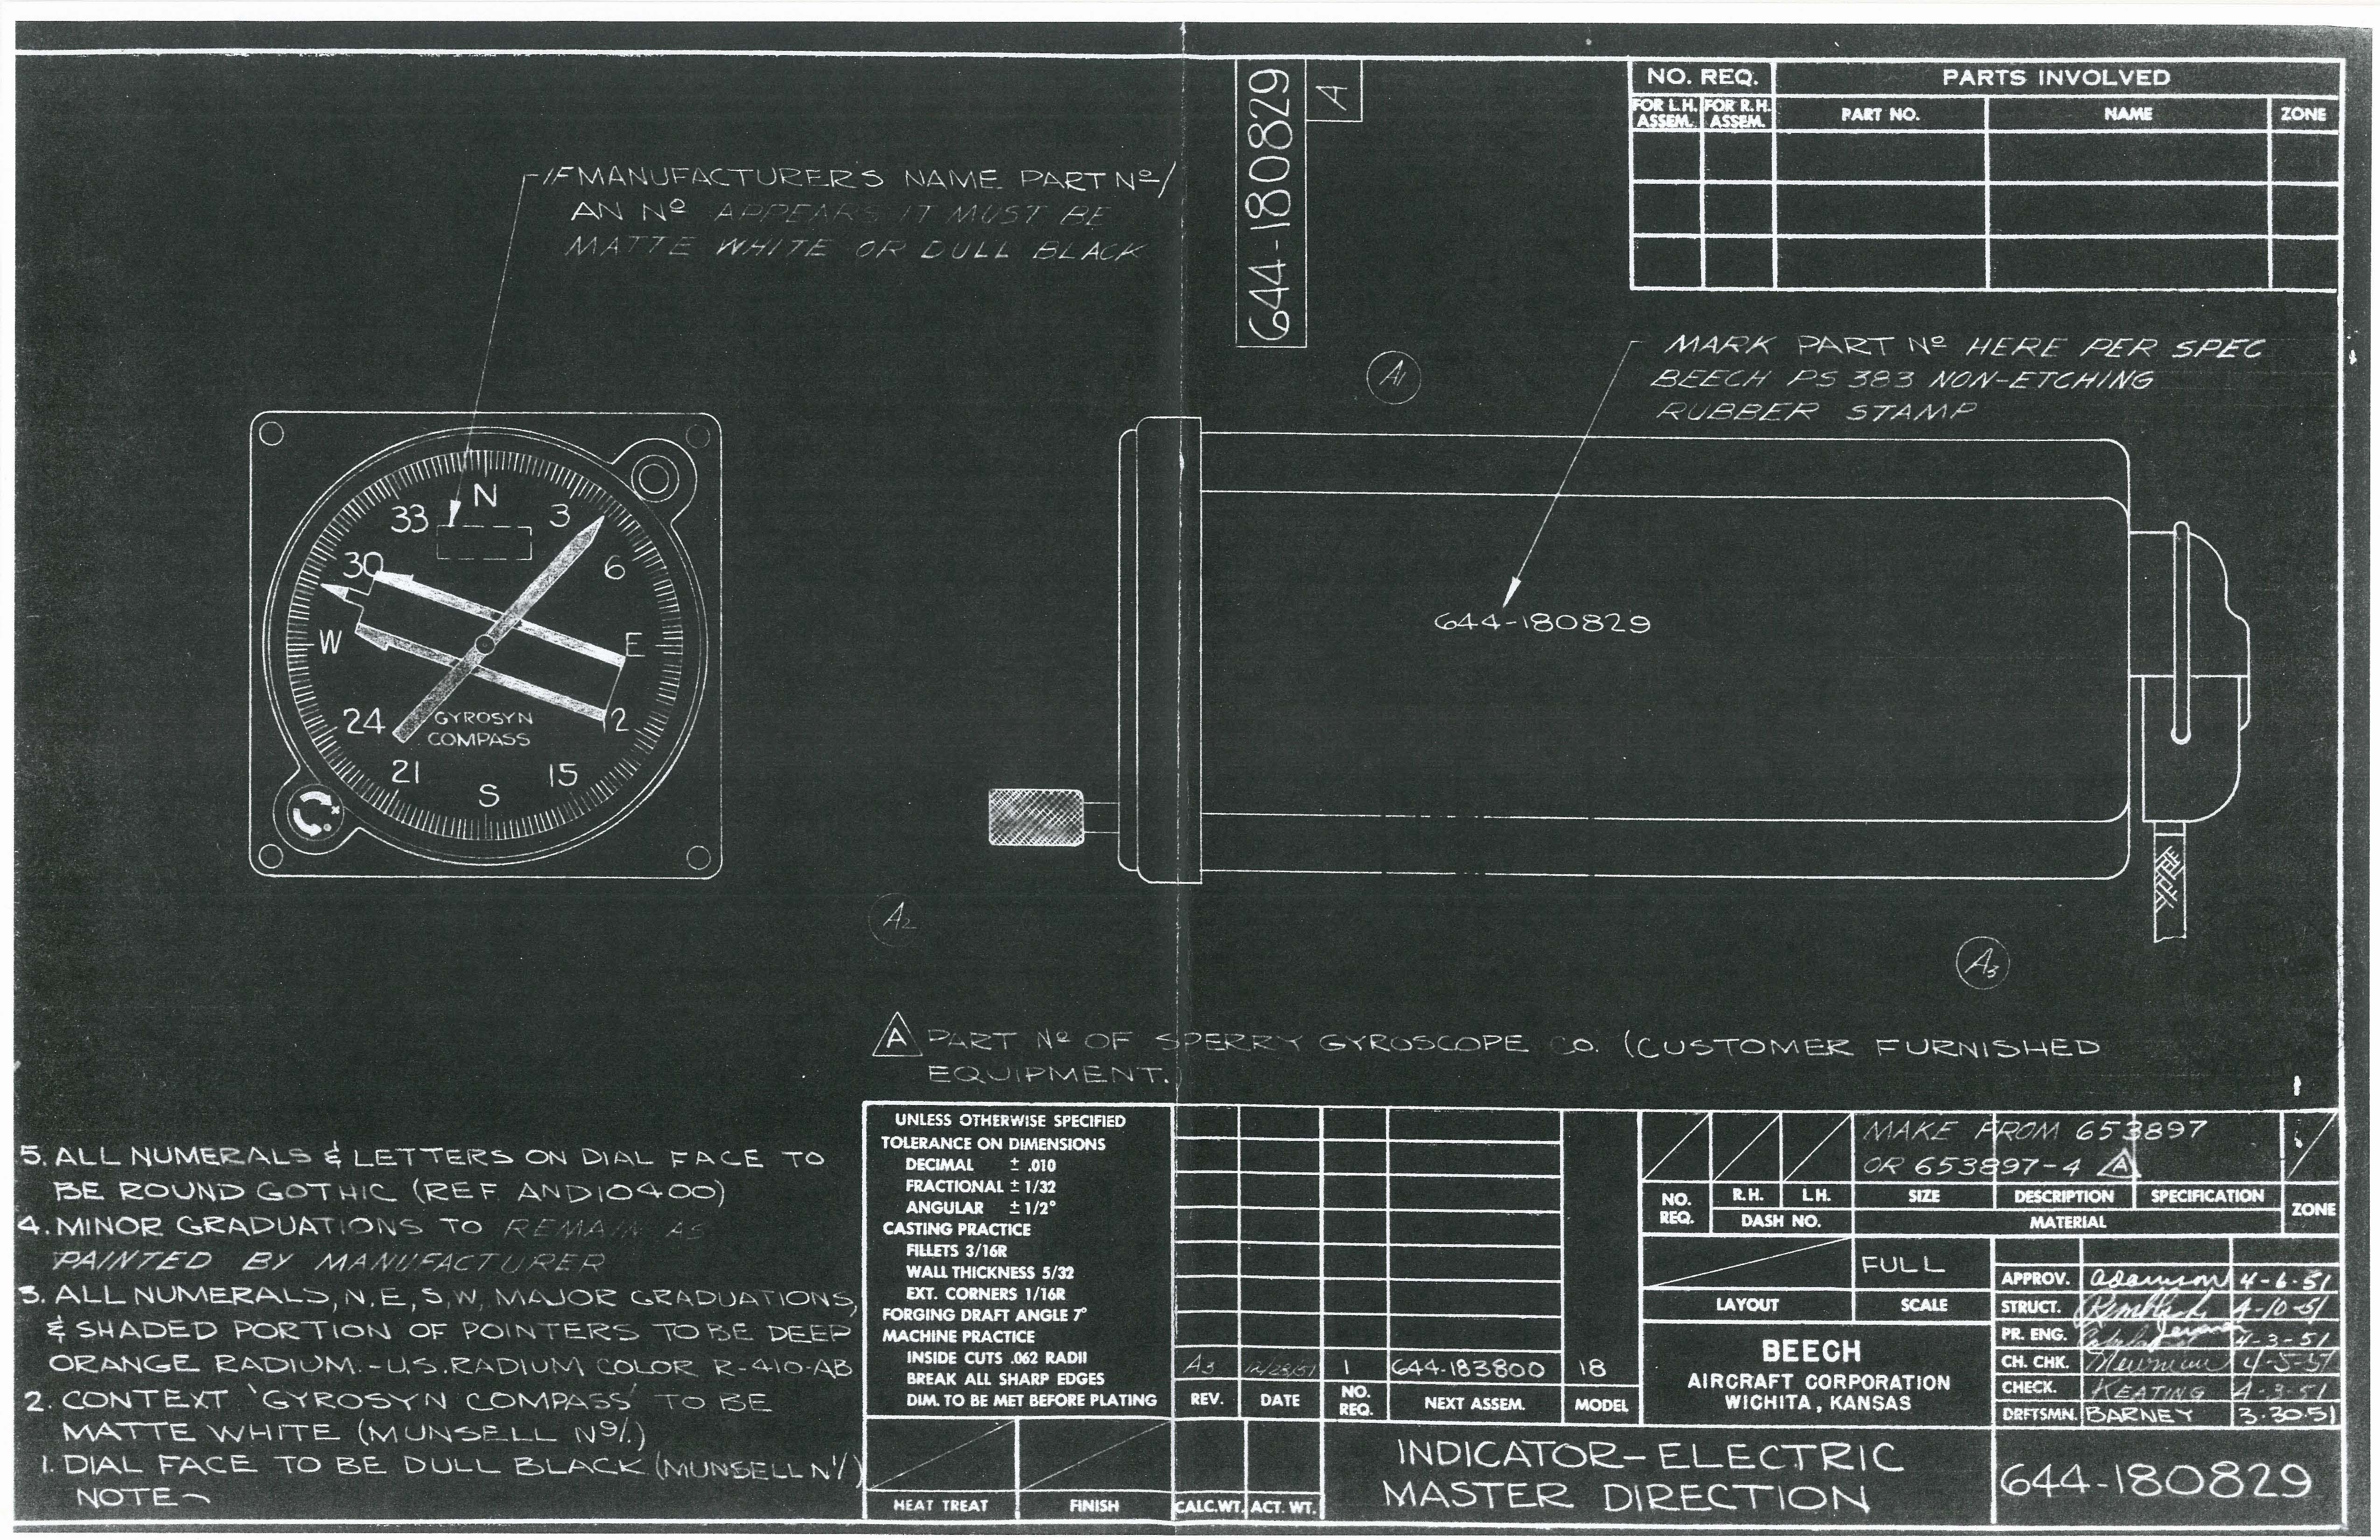 644-180829
A
NO. REQ.
PARTS INVOLVED
FOR L.H. ASSEM.
FOR R.H. ASSEM.
PART NO.
NAME
ZONE
IF MANUFACTURERS NAME PART Nº/
AN Nº APPEARS IT MUST BE
MATTE WHITE OR DULL BLACK
MARK PART Nº HERE PER SPEC
BEECH PS 383 NON-ETCHING
RUBBER STAMP
A1
N
33
3
30
6
W
E
24
12
GYROSYN
COMPASS
21
15
S
644-180829
A2
A3
A PART Nº OF SPERRY GYROSCOPE CO. (CUSTOMER FURNISHED
EQUIPMENT.
5. ALL NUMERALS & LETTERS ON DIAL FACE TO
BE ROUND GOTHIC (REF. AND10400)
4. MINOR GRADUATIONS TO REMAIN AS
PAINTED BY MANUFACTURER
3. ALL NUMERALS, N, E, S, W, MAJOR GRADUATIONS,
& SHADED PORTION OF POINTERS TO BE DEEP
ORANGE RADIUM.-U.S. RADIUM COLOR R-410-AB
2. CONTEXT 'GYROSYN COMPASS' TO BE
MATTE WHITE (MUNSELL N9/.)
1. DIAL FACE TO BE DULL BLACK (MUNSELL N1/)
NOTE
UNLESS OTHERWISE SPECIFIED
TOLERANCE ON DIMENSIONS
DECIMAL ± .010
FRACTIONAL ± 1/32
ANGULAR ± 1/2°
CASTING PRACTICE
FILLETS 3/16R
WALL THICKNESS 5/32
EXT. CORNERS 1/16R
FORGING DRAFT ANGLE 7°
MACHINE PRACTICE
INSIDE CUTS .062 RADII
BREAK ALL SHARP EDGES
DIM. TO BE MET BEFORE PLATING
HEAT TREAT
FINISH
A3 12/28/51 1 644-183800 18
REV. DATE NO. REQ. NEXT ASSEM. MODEL
CALC.WT. ACT. WT.
MAKE FROM 653897
OR 653897-4 A
NO. REQ.
R.H. L.H. SIZE DESCRIPTION SPECIFICATION ZONE
DASH NO. MATERIAL
FULL
LAYOUT SCALE
BEECH
AIRCRAFT CORPORATION
WICHITA, KANSAS
APPROV. Adamson 4-6-51
STRUCT. 4-10-51
PR. ENG. 4-3-51
CH. CHK. Newman 4-5-51
CHECK. KEATING 4-3-51
DRFTSMN. BARNEY 3-30-51
INDICATOR-ELECTRIC
MASTER DIRECTION
644-180829